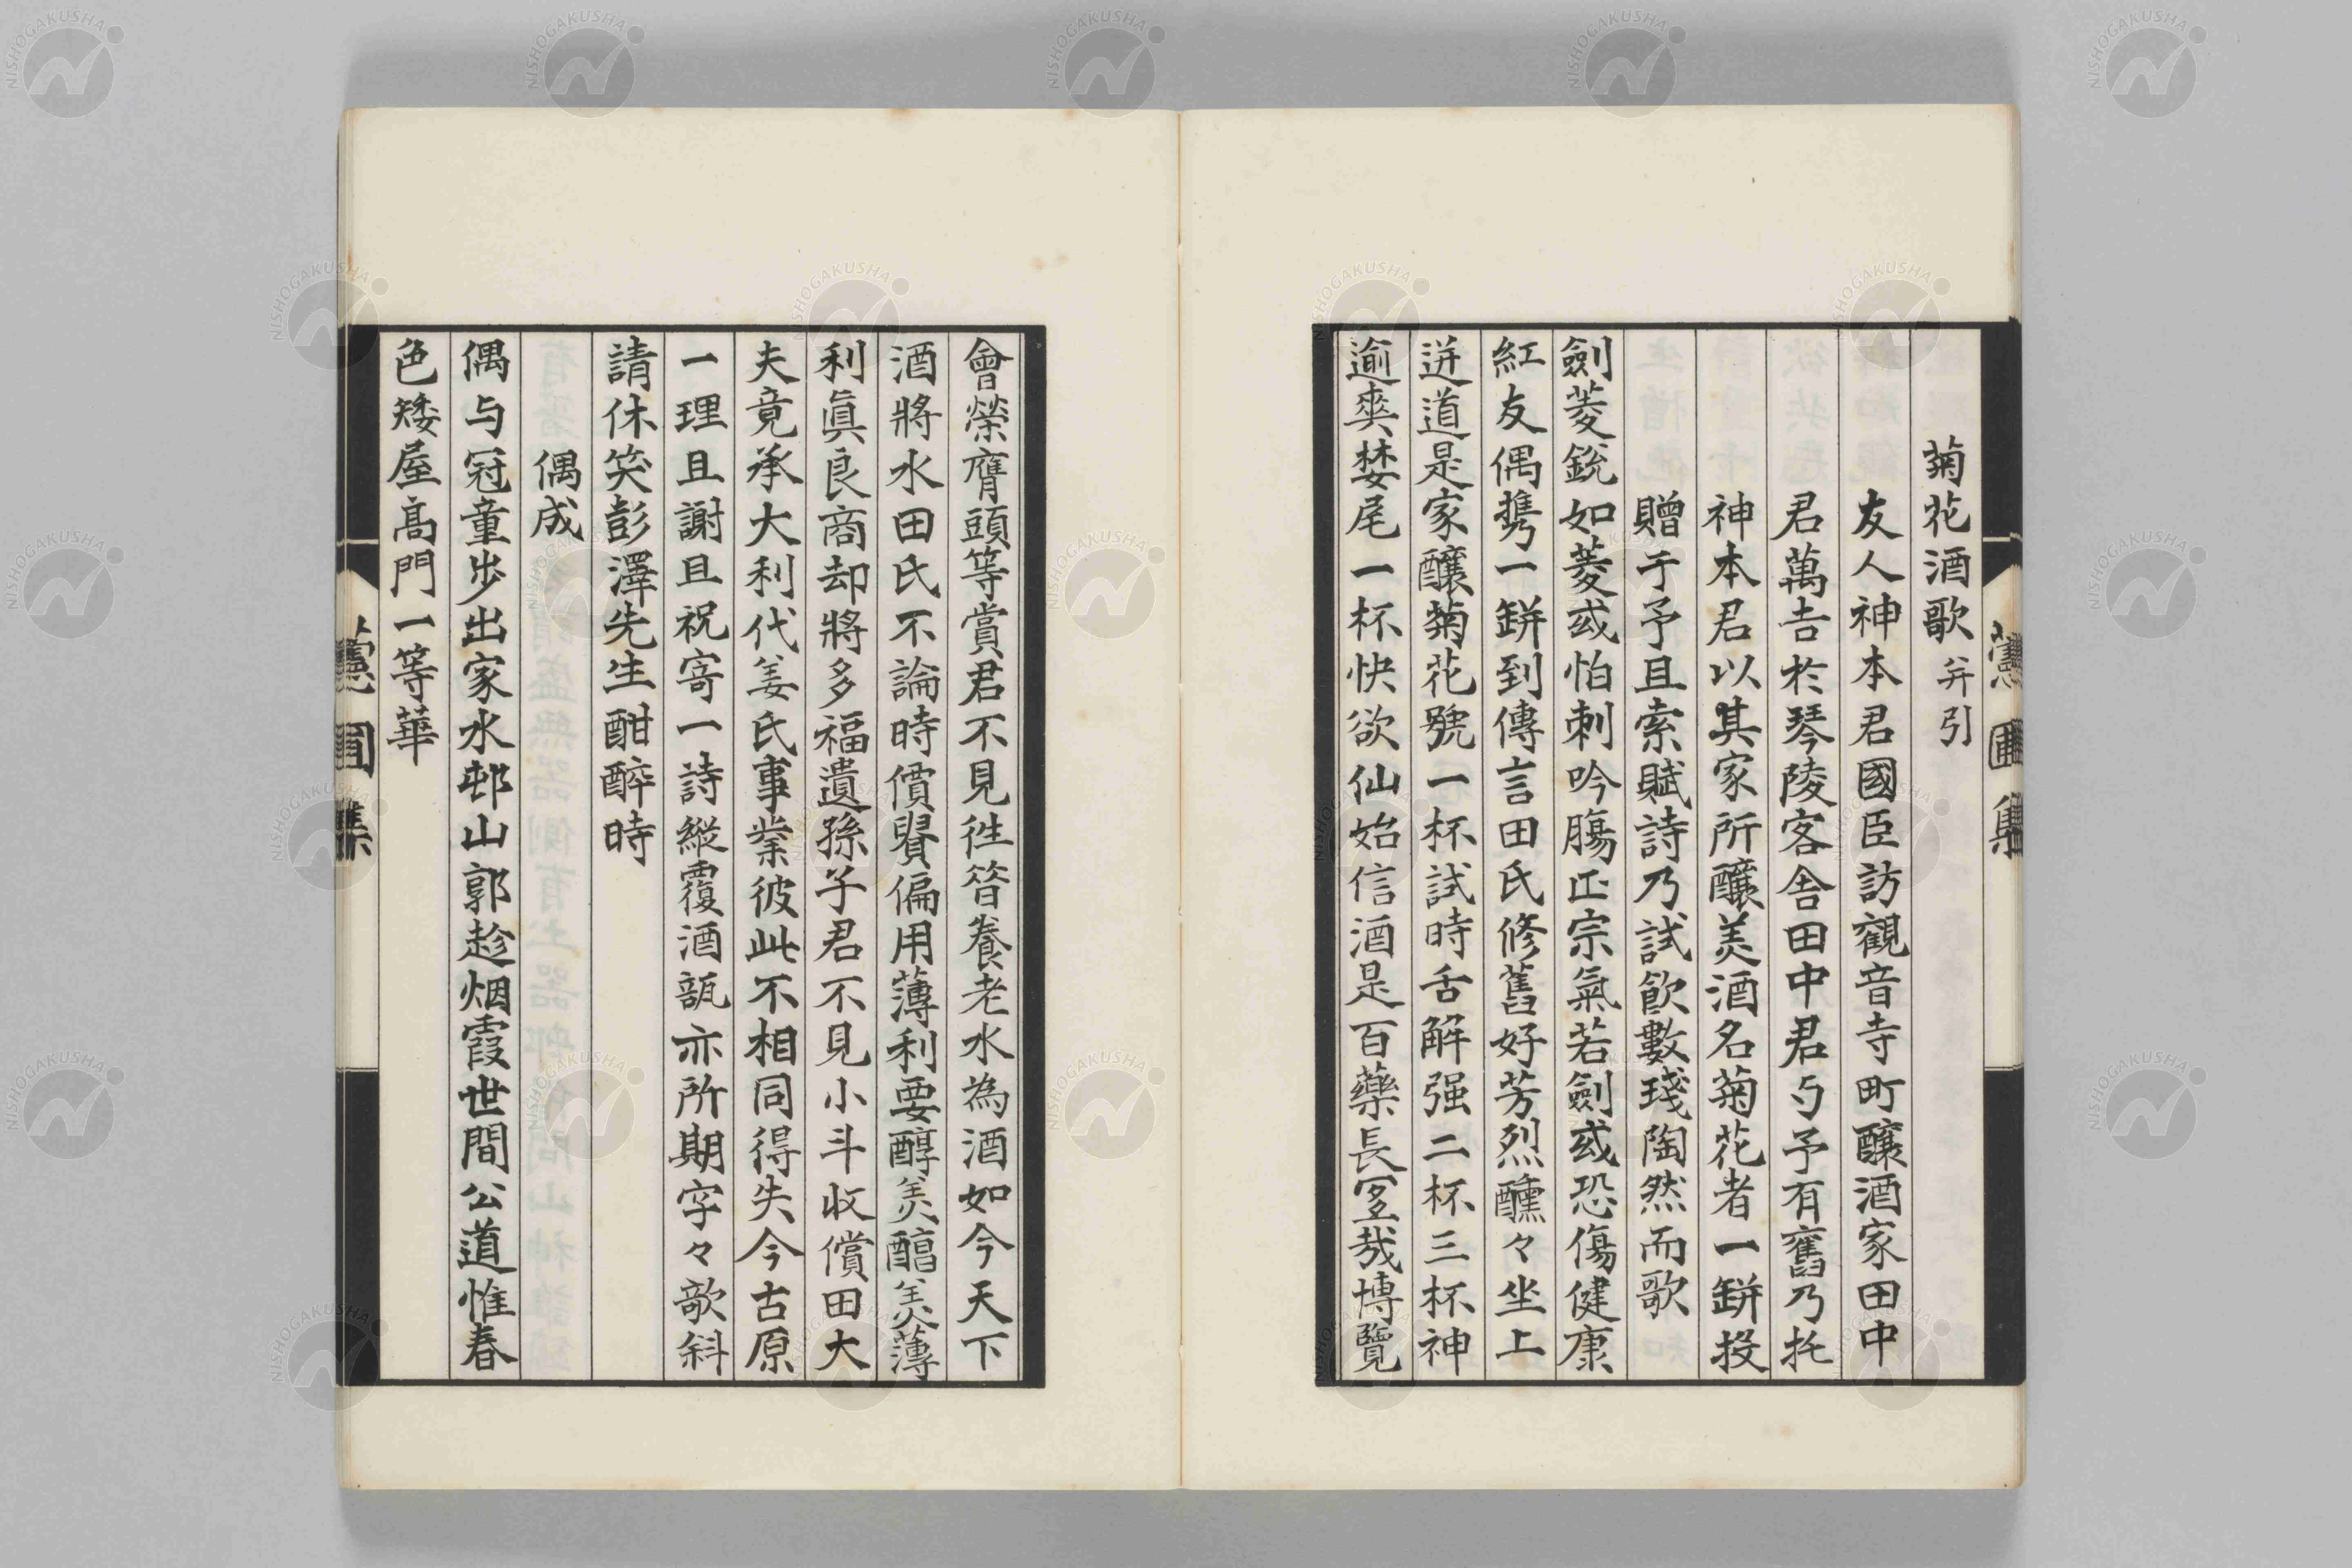 菊花酒歌 并引
友人神本君國臣訪觀音寺町釀酒家田中
君萬吉於琴陵客舎田中君与予有舊乃托
神本君以其家所釀美酒名菊花者一缾投
贈于予且索賦詩乃試飲數琖陶然而歌
劍菱銳如菱或怕刺吟膓正宗氣若劍或恐傷健康
紅友偶攜一缾到傳言田氏修舊好芳烈醺々坐上
迸道是家釀菊花號一杯試時舌解强二杯三杯神
逾爽婪尾一杯快欲仙始信酒是百藥長冝哉博覽
會榮膺頭等賞君不見徃昝養老水為酒如今天下
酒將水田氏不論時價貴偏用薄利要醇美醇美薄
利眞良商却將多福遺孫子君不見小斗收償田大
夫竟承大利代姜氏事業彼此不相同得失今古原
一理且謝且祝寄一詩縱覆酒瓿亦所期字々欹斜
請休笑彭澤先生酣醉時
偶成
偶与冠童步出家水邨山郭趁烟霞世間公道惟春
色矮屋高門一等華